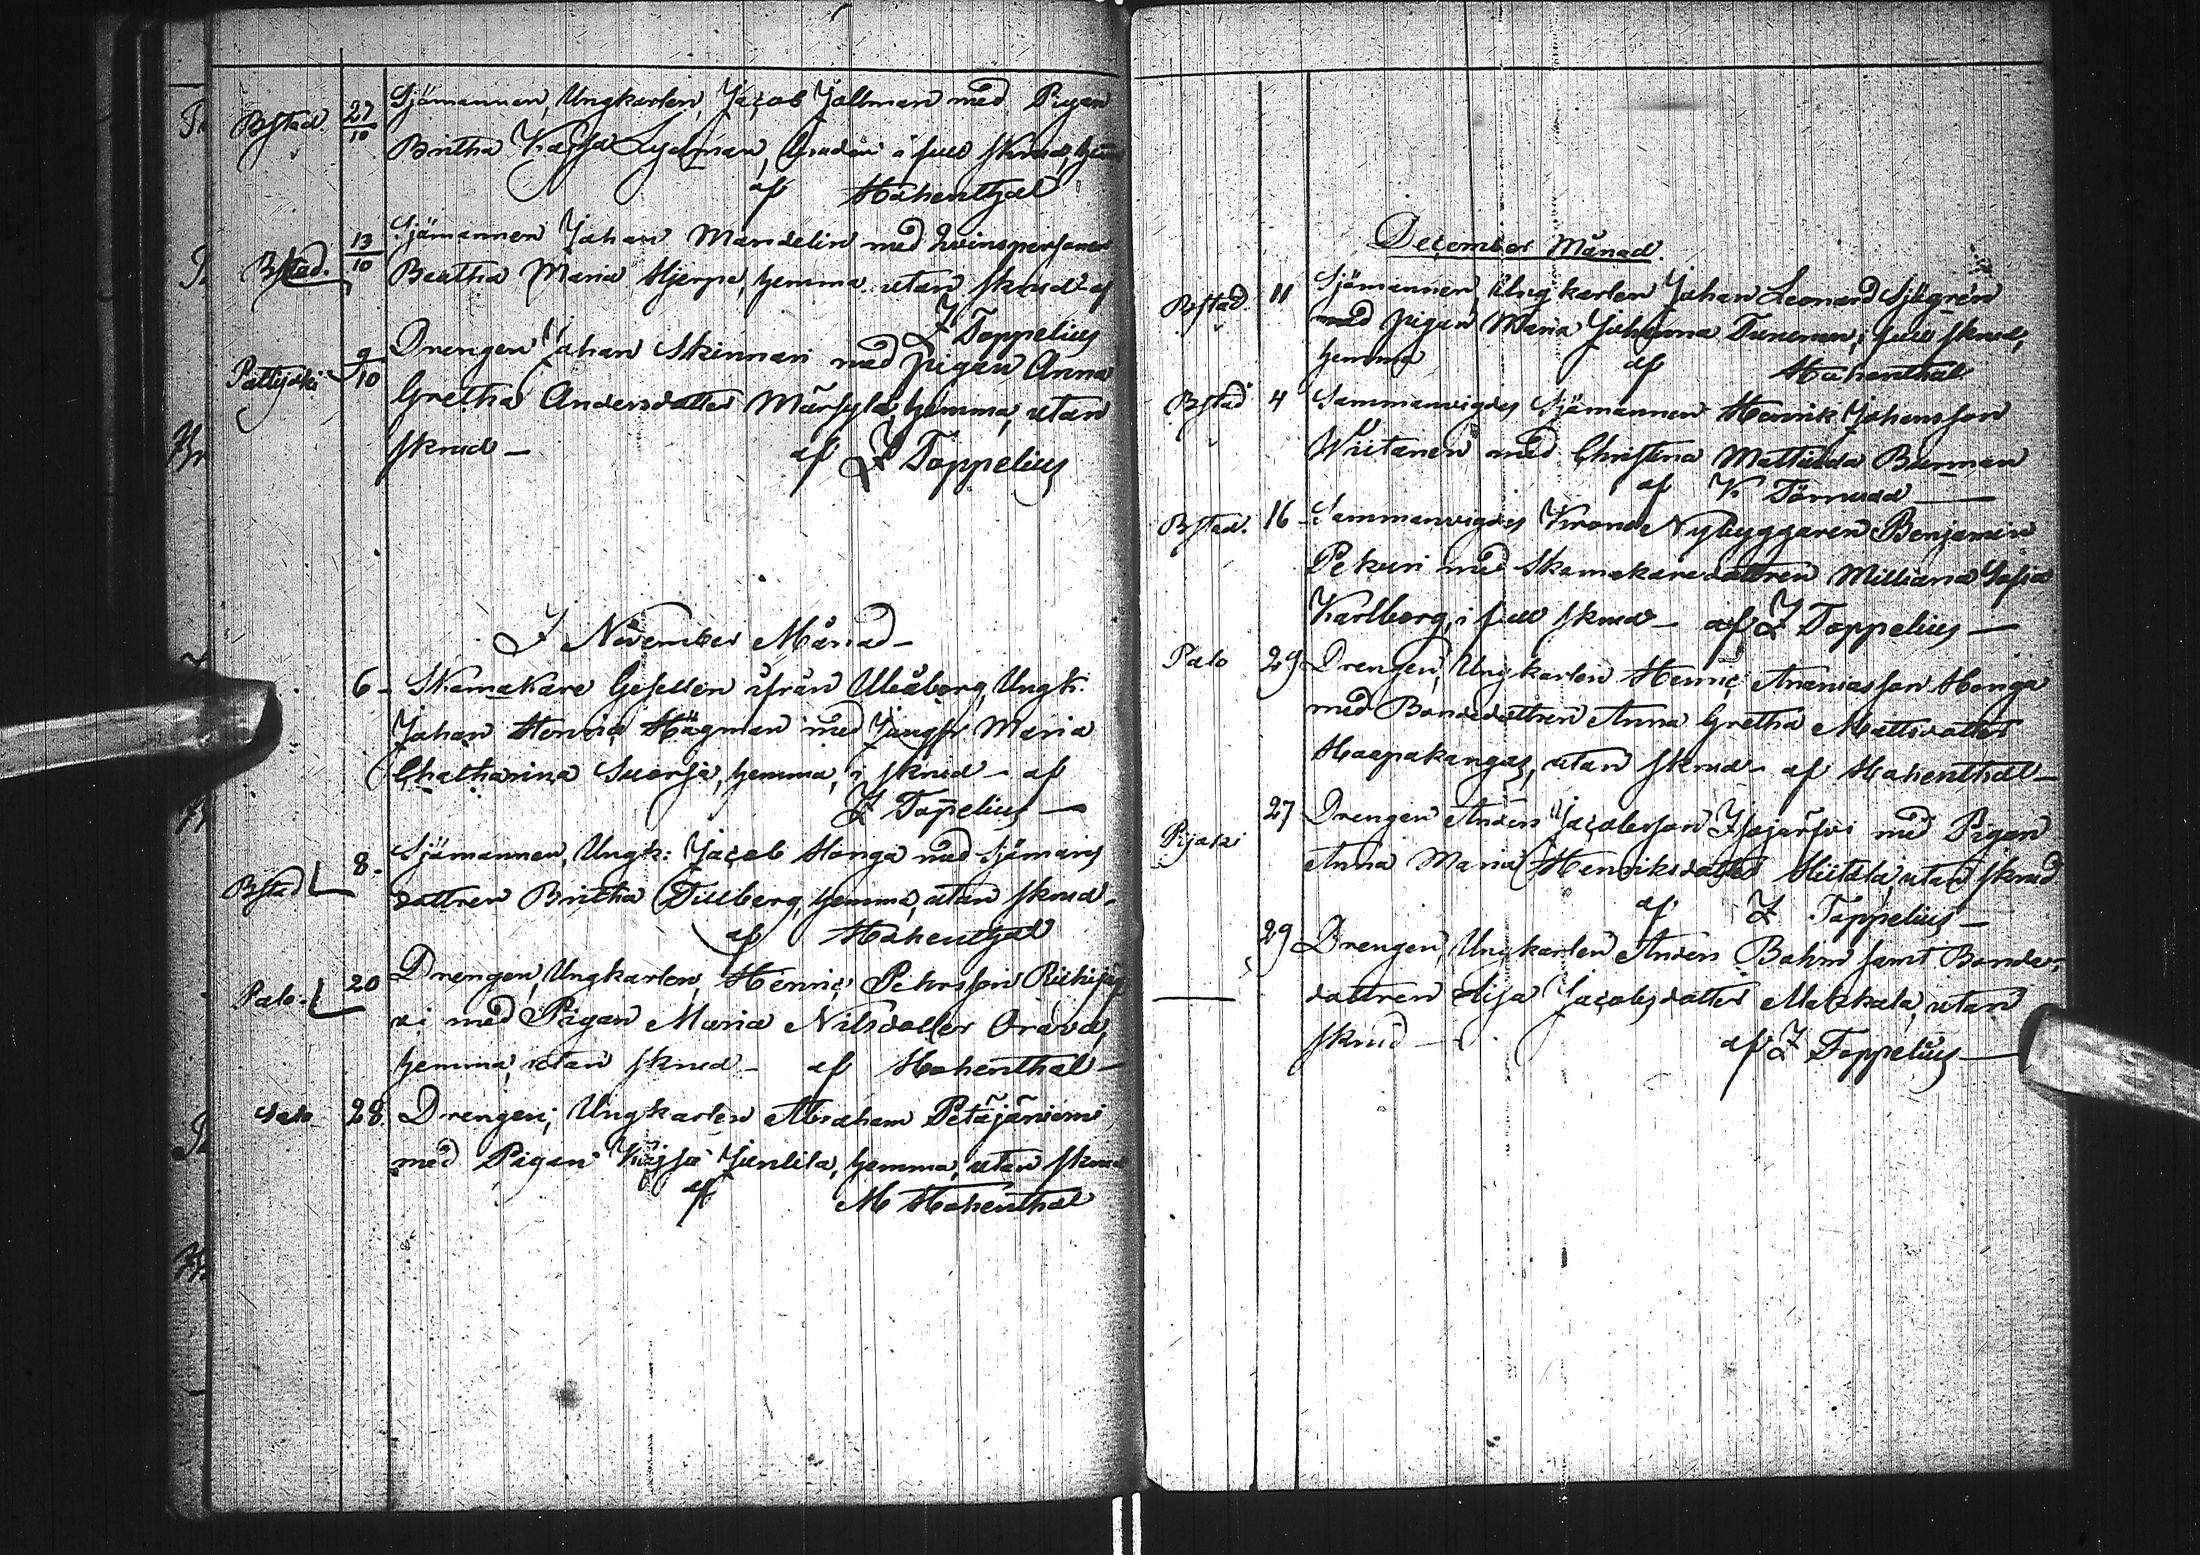 Bstad. 27/10 Sjömannen, Ungkarlen, Jacob Jallman med Pigan
Britha Kajsa Lydman, bruden i full skrud,
af Hohenthal
Bstad. 13/10 Sjömannen Johan Mandelin med
Beatha Maria Hjerpe, hemma utan skrud af
Z Toppelius
Pattijoki 9/10 Drengen Johan Skinnari med pigan Anna
Gretha Andersdotter Märsylä, hemma, utan
skrud — af Z Toppelius
I November Månad —
6 — Skomakare Gesellen ifrån Uleåborg, Ungk.
Johan Henric Hägman med Jungfr Maria
Chatharina, hemma, i skrud — af
Z Topelius —
Bstad 8 — Sjömannen, Ungk: Jacob Honga med Sjömans
dottren Britha Tillberg, hemma, utan skrud —
af Hohenthal
Palo — 20 Drengen, Ungkarlen, Henric Pehrsson
vi med Pigan Maria Nilsdotter Orava,
hemma, utan skrud — af Hohenthal —
Salo 28. Drengen, Ungkarlen Abraham Petäjäniemi
med Pigan Kajsa Junlila, hemma, utan skrud
af M Hohenthal
December Månad.
Bstad 11 Sjömannen, Ungkarlen Johan Leonard Sjögrén
med pigan Maria Johanna, full skrud,
hemma af Hohenthal
Bstad 4 Sammanvigdes Sjömannen Henrik Johansson
Wiitanen med Christina Mathilda Burman
af K Törnudd —
Bstad. 16 — Sammanvigdes Krono Nybyggaren Benjamin
Pekuri med Skomakaredottren Milliana Sofia
Karlborg, i full skrud — af Z Toppelius —
Palo 29 Drengen, Ungkarlen Henric Ananiasson Honga
med Bondedottren Anna Gretha Mattsdotter
Haapakangas, utan skrud — af Hohenthal —
Pijaki 27 Drengen Anders Jacobsson med Pigan
Anna Maria Henriksdotter Hiitala, utan skrud
af Z Toppelius —
29 Drengen, Ungkarlen Anders Bahm samt Bonde-
dottren Lisa Jacobsdotter Matskala, utan
skrud — af Z Toppelius —